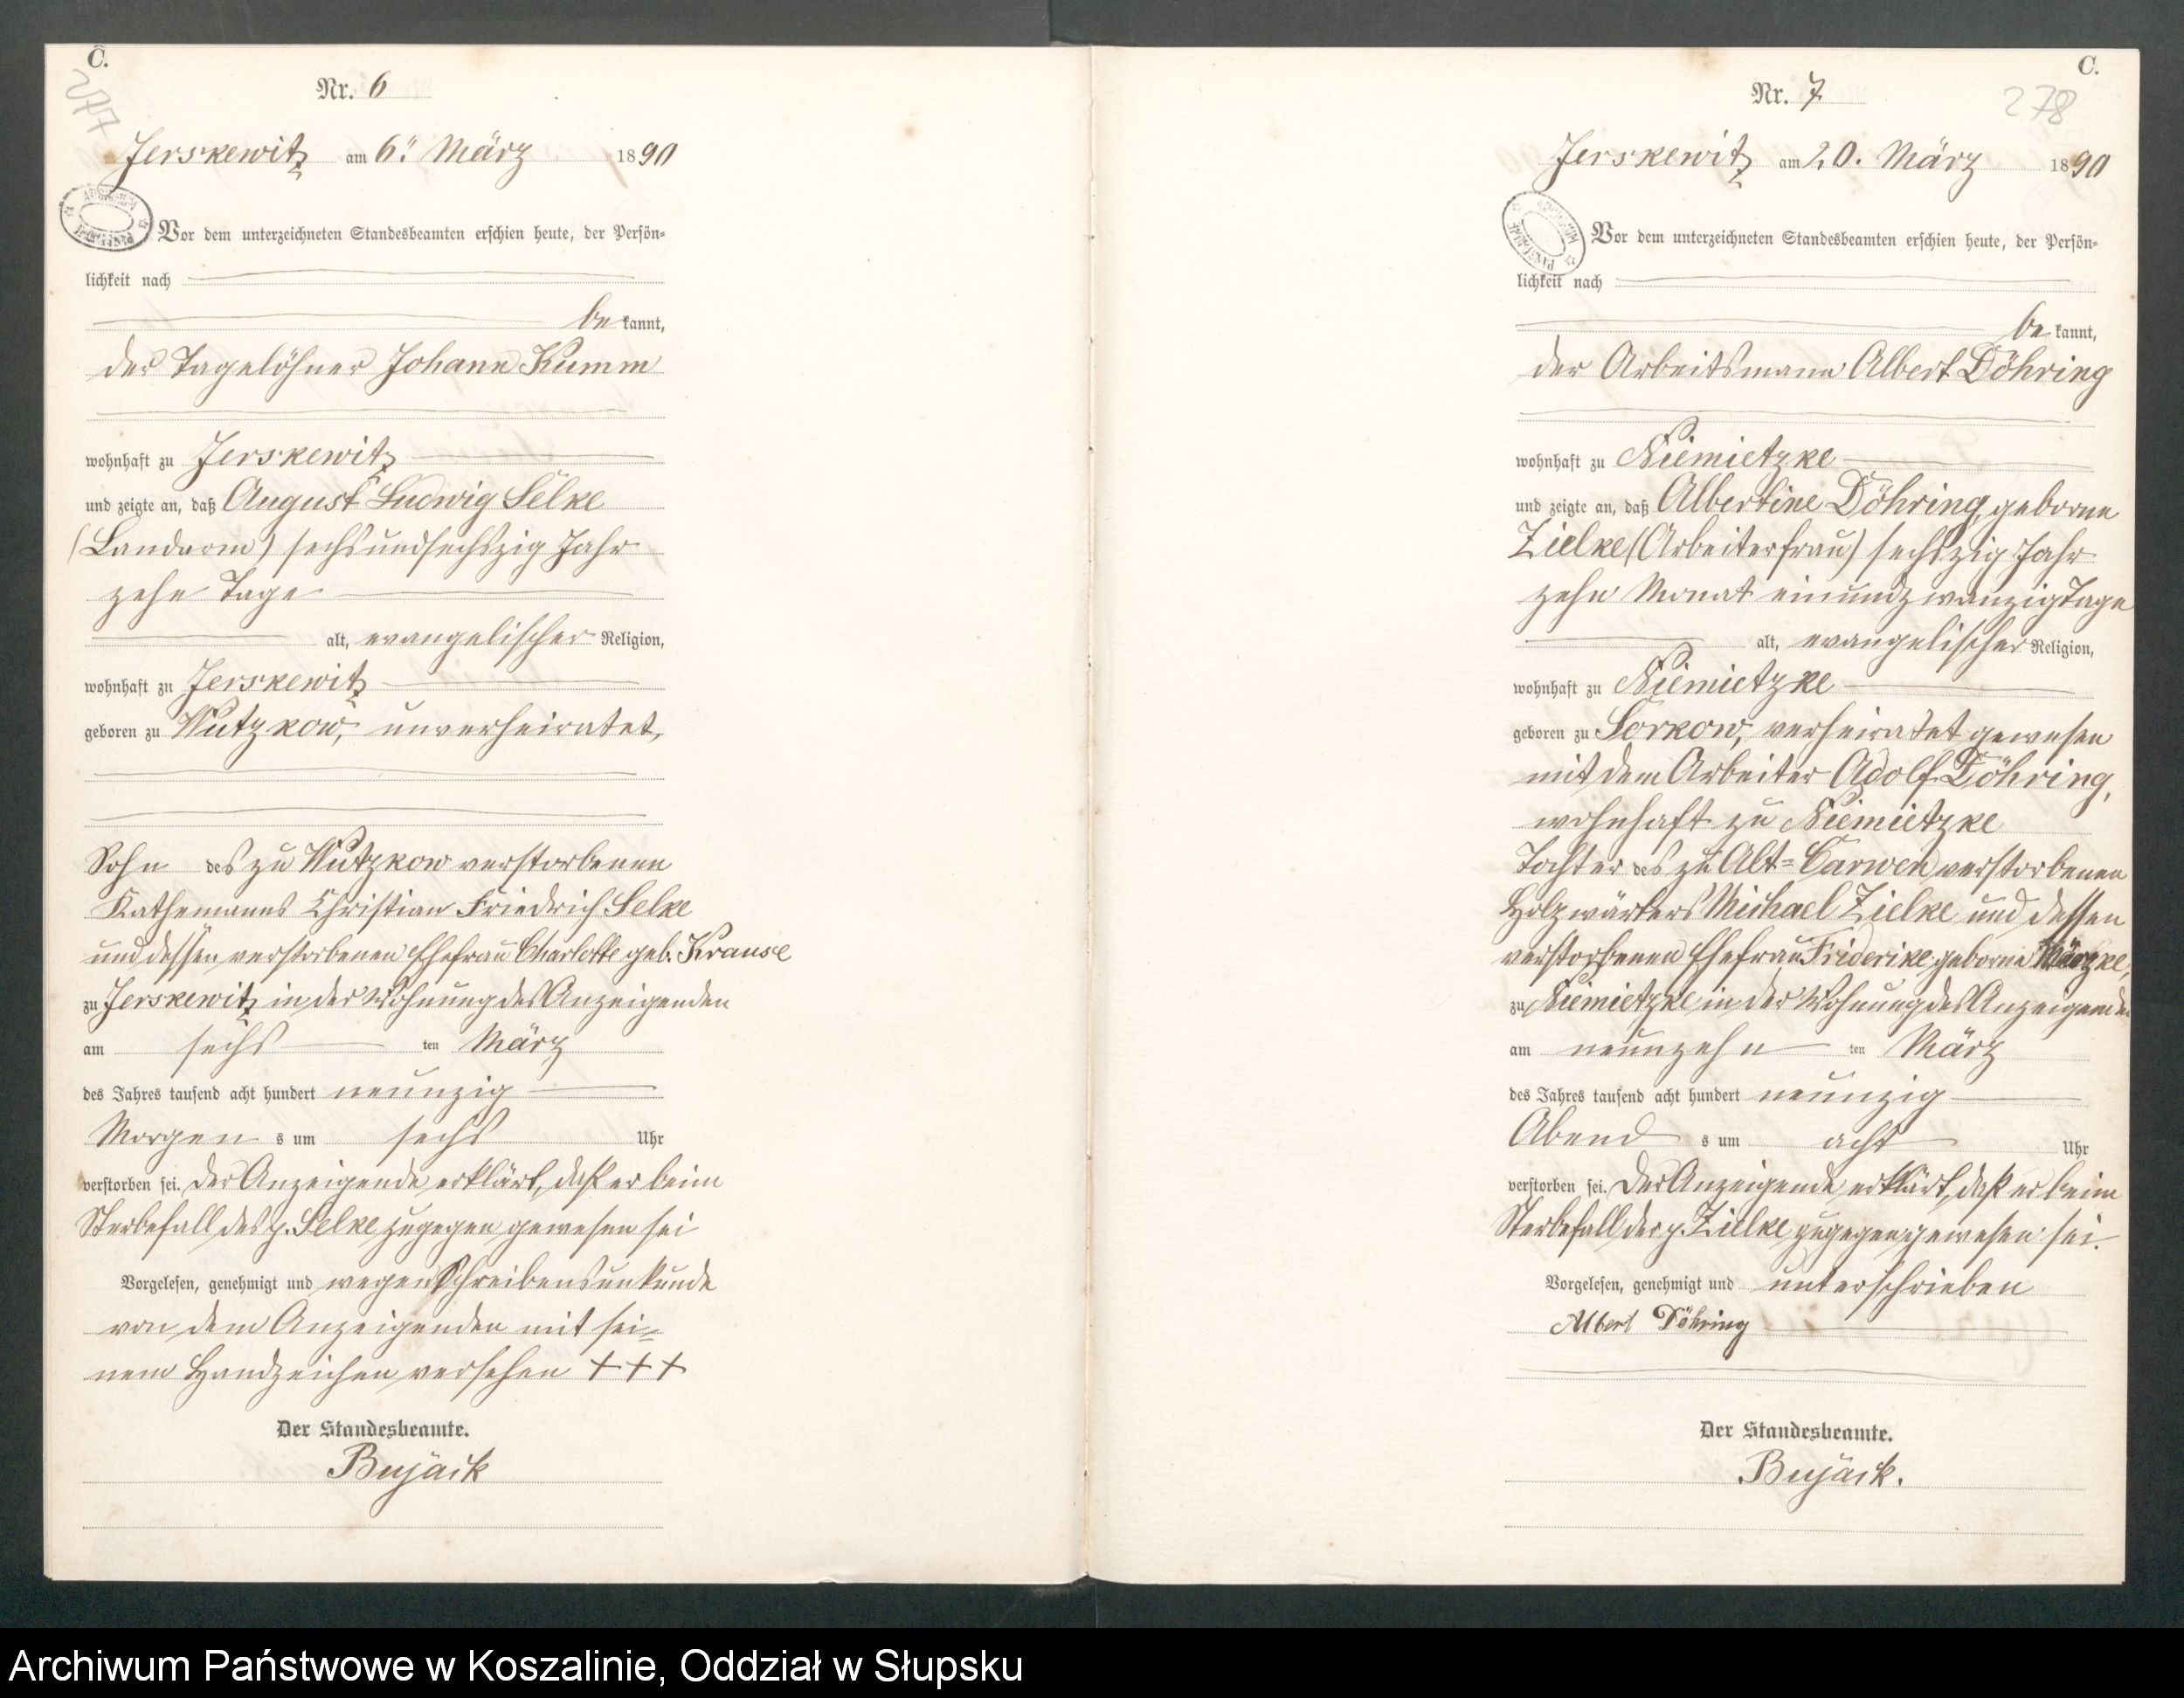 C.
277
Nr. 6
Jerskewitz am 6ᵗᵉⁿ März 1890
Vor dem unterzeichneten Standesbeamten erschien heute, der Persön-
lichkeit nach
be kannt,
der Tagelöhner Johann Kumm
wohnhaft zu Jerskewitz
und zeigte an, daß August Ludwig Selke
(Landarm) sechsundsechszig Jahr
zehn Tage
alt, evangelischer Religion,
wohnhaft zu Jerskewitz
geboren zu Wutzkow, unverheiratet,
Sohn des zu Wutzkow verstorbenen
Kathemanns Christian Friedrich Selke
und dessen verstorbenen Ehefrau Charlotte geb. Krause
zu Jerskewitz in der Wohnung des Anzeigenden
am sechs ten März
des Jahres tausend acht hundert neunzig
Morgen s um sechs Uhr
verstorben sei. Der Anzeigende erklärt, daß er beim
Sterbefall des p. Selke zugegen gewesen sei
Vorgelesen, genehmigt und wegen Schreibensunkunde
von dem Anzeigenden mit sei-
nem Handzeichen versehen +++
Der Standesbeamte.
Bujäck
C.
278
Nr. 7
Jerskewitz am 20. März 1890
Vor dem unterzeichneten Standesbeamten erschien heute, der Persön-
lichkeit nach
be kannt,
der Arbeitsmann Albert Döhring
wohnhaft zu Niemietzke
und zeigte an, daß Albertine Döhring, geborne
Zielke (Arbeiterfrau) sechszig Jahr
zehn Monat einundzwanzig Tage
alt, evangelischer Religion,
wohnhaft zu Niemietzke
geboren zu Sorkow, verheiratet gewesen
mit dem Arbeiter Adolf Döhring,
wohnhaft zu Niemietzke
Tochter des zu Alt-Carwen verstorbenen
Holzwärters Michael Zielke und dessen
verstorbenen Ehefrau Friderike geborne
zu Niemietzke in der Wohnung des Anzeigenden
am neunzehn ten März
des Jahres tausend acht hundert neunzig
Abend s um acht Uhr
verstorben sei. Der Anzeigende erklärt, daß er beim
Sterbefall der p. Zielke zugegen gewesen sei.
Vorgelesen, genehmigt und unterschrieben
Albert Döhring
Der Standesbeamte.
Bujäck.
Archiwum Państwowe w Koszalinie, Oddział w Słupsku